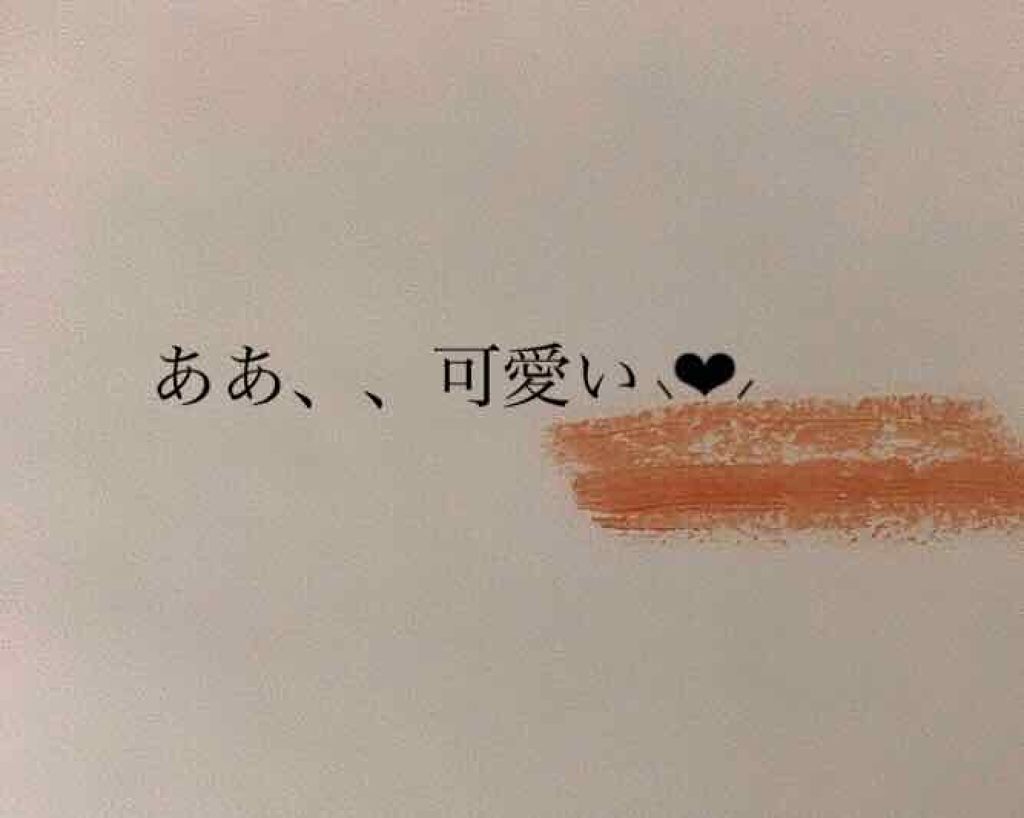 ああ、、可愛い\❤︎/